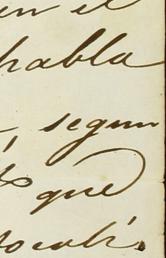 en el
habla
segun
que